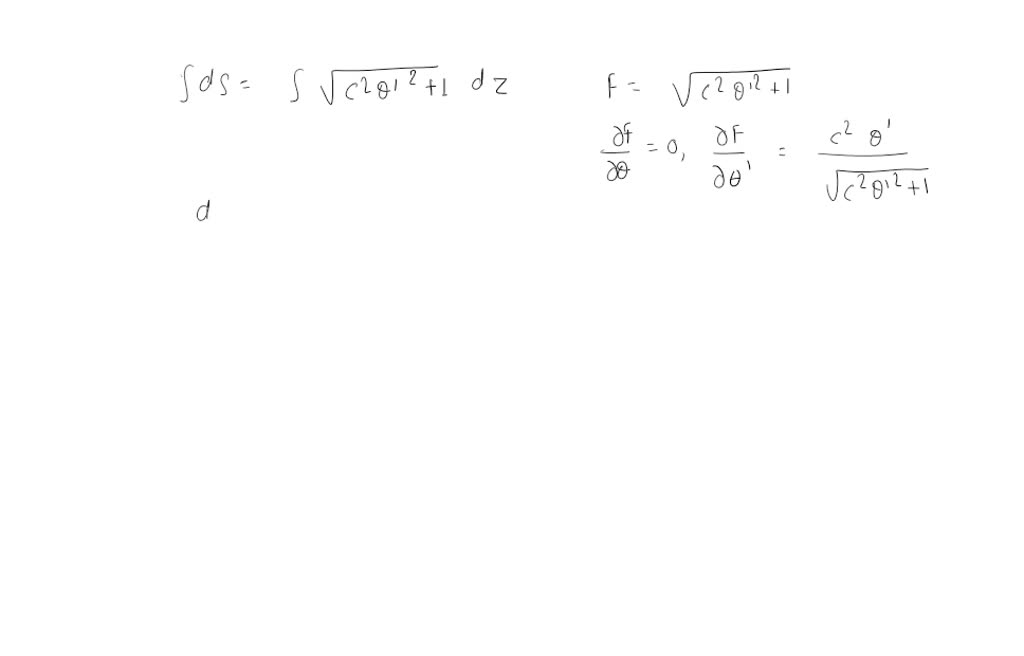 ∫ds = ∫ √(c²θ'²+1) dz
F = √(c²θ'²+1)
∂f/∂θ = 0, ∂F/∂θ' = c²θ'/√(c²θ'²+1)
d